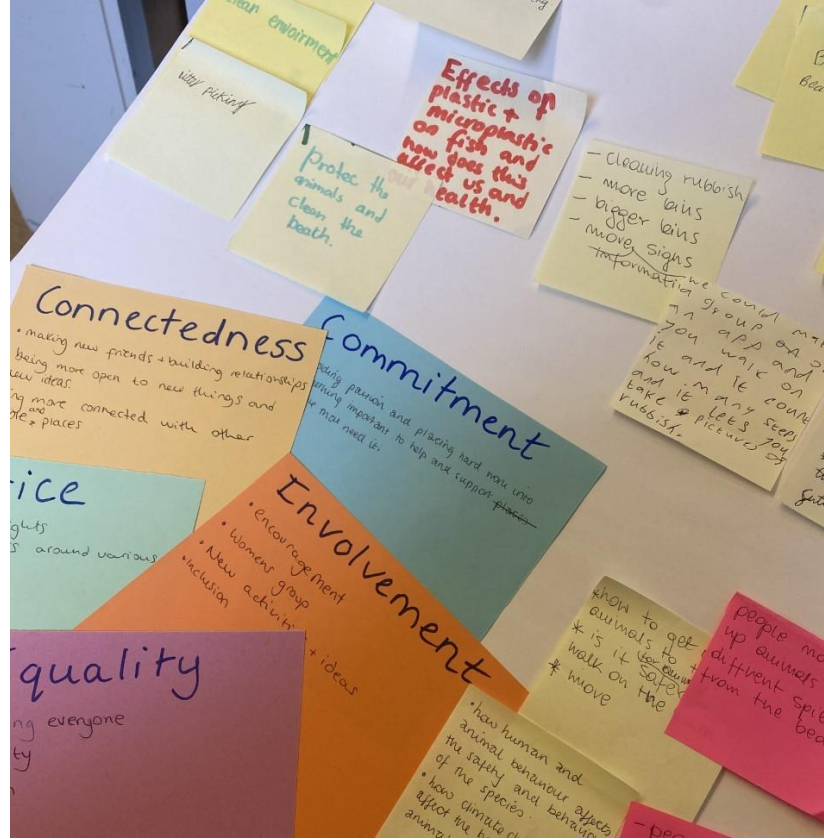 clean enviorment
litter picking
Protec the
animals and
clean the
beath.
Effects of
plastic +
microplastic
on fish and
how does this
affect us and
our health.
- cleaning rubbish
- more bins
- bigger bins
- more signs
information
we could
group on
an app and
you walk on
it and it count
how many steps
and it lets you
take pictures of
rubbish.
Connectedness
• making new friends + building relationships
being more open to new things and
new ideas
more connected with other
and
places
Commitment
passion and placing hard work into
important to help and support places
need it.
ice
around various
Involvement
• encouragement
• Womens group
• New activiti
+ ideas
• Inclusion
quality
everyone
*how to get
animals to
* is it safer
walk on the
* move
people
up animals
diffrent
from the
• how human and
animal behaviour affects
the safety and
of the species.
• how climate
affect the